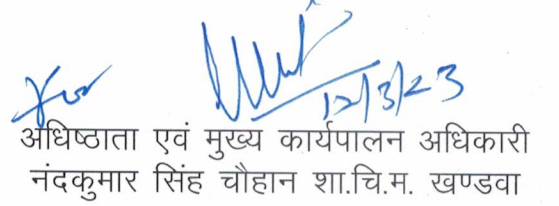 12/3/23
अधिष्ठाता एवं मुख्य कार्यपालन अधिकारी
नंदकुमार सिंह चौहान शा.चि.म. खण्डवा